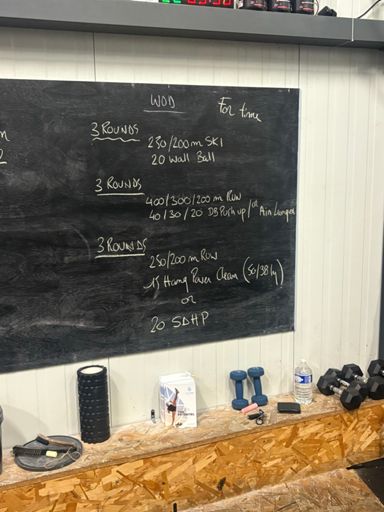 WOD
For time
3 ROUNDS
250/200 m SKI
20 Wall Ball
3 ROUNDS
400/300/200 m RUN
40/30/20 DB Push up / or Air
3 ROUNDS
250/200 m ROW
15 Hang Power Clean (50/38 kg)
or
20 SDHP